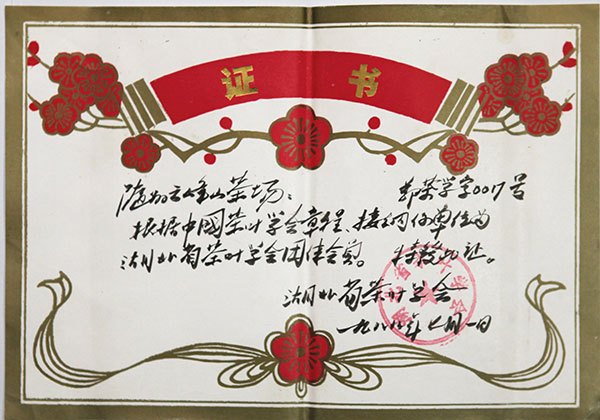 证书
鄂茶学字0017号
云峰山茶场：
根据中國茶叶学会章程、接纳你单位为
湖北省茶叶学会团体会员。特发此证。
湖北省茶叶学会
一九八八年七月一日